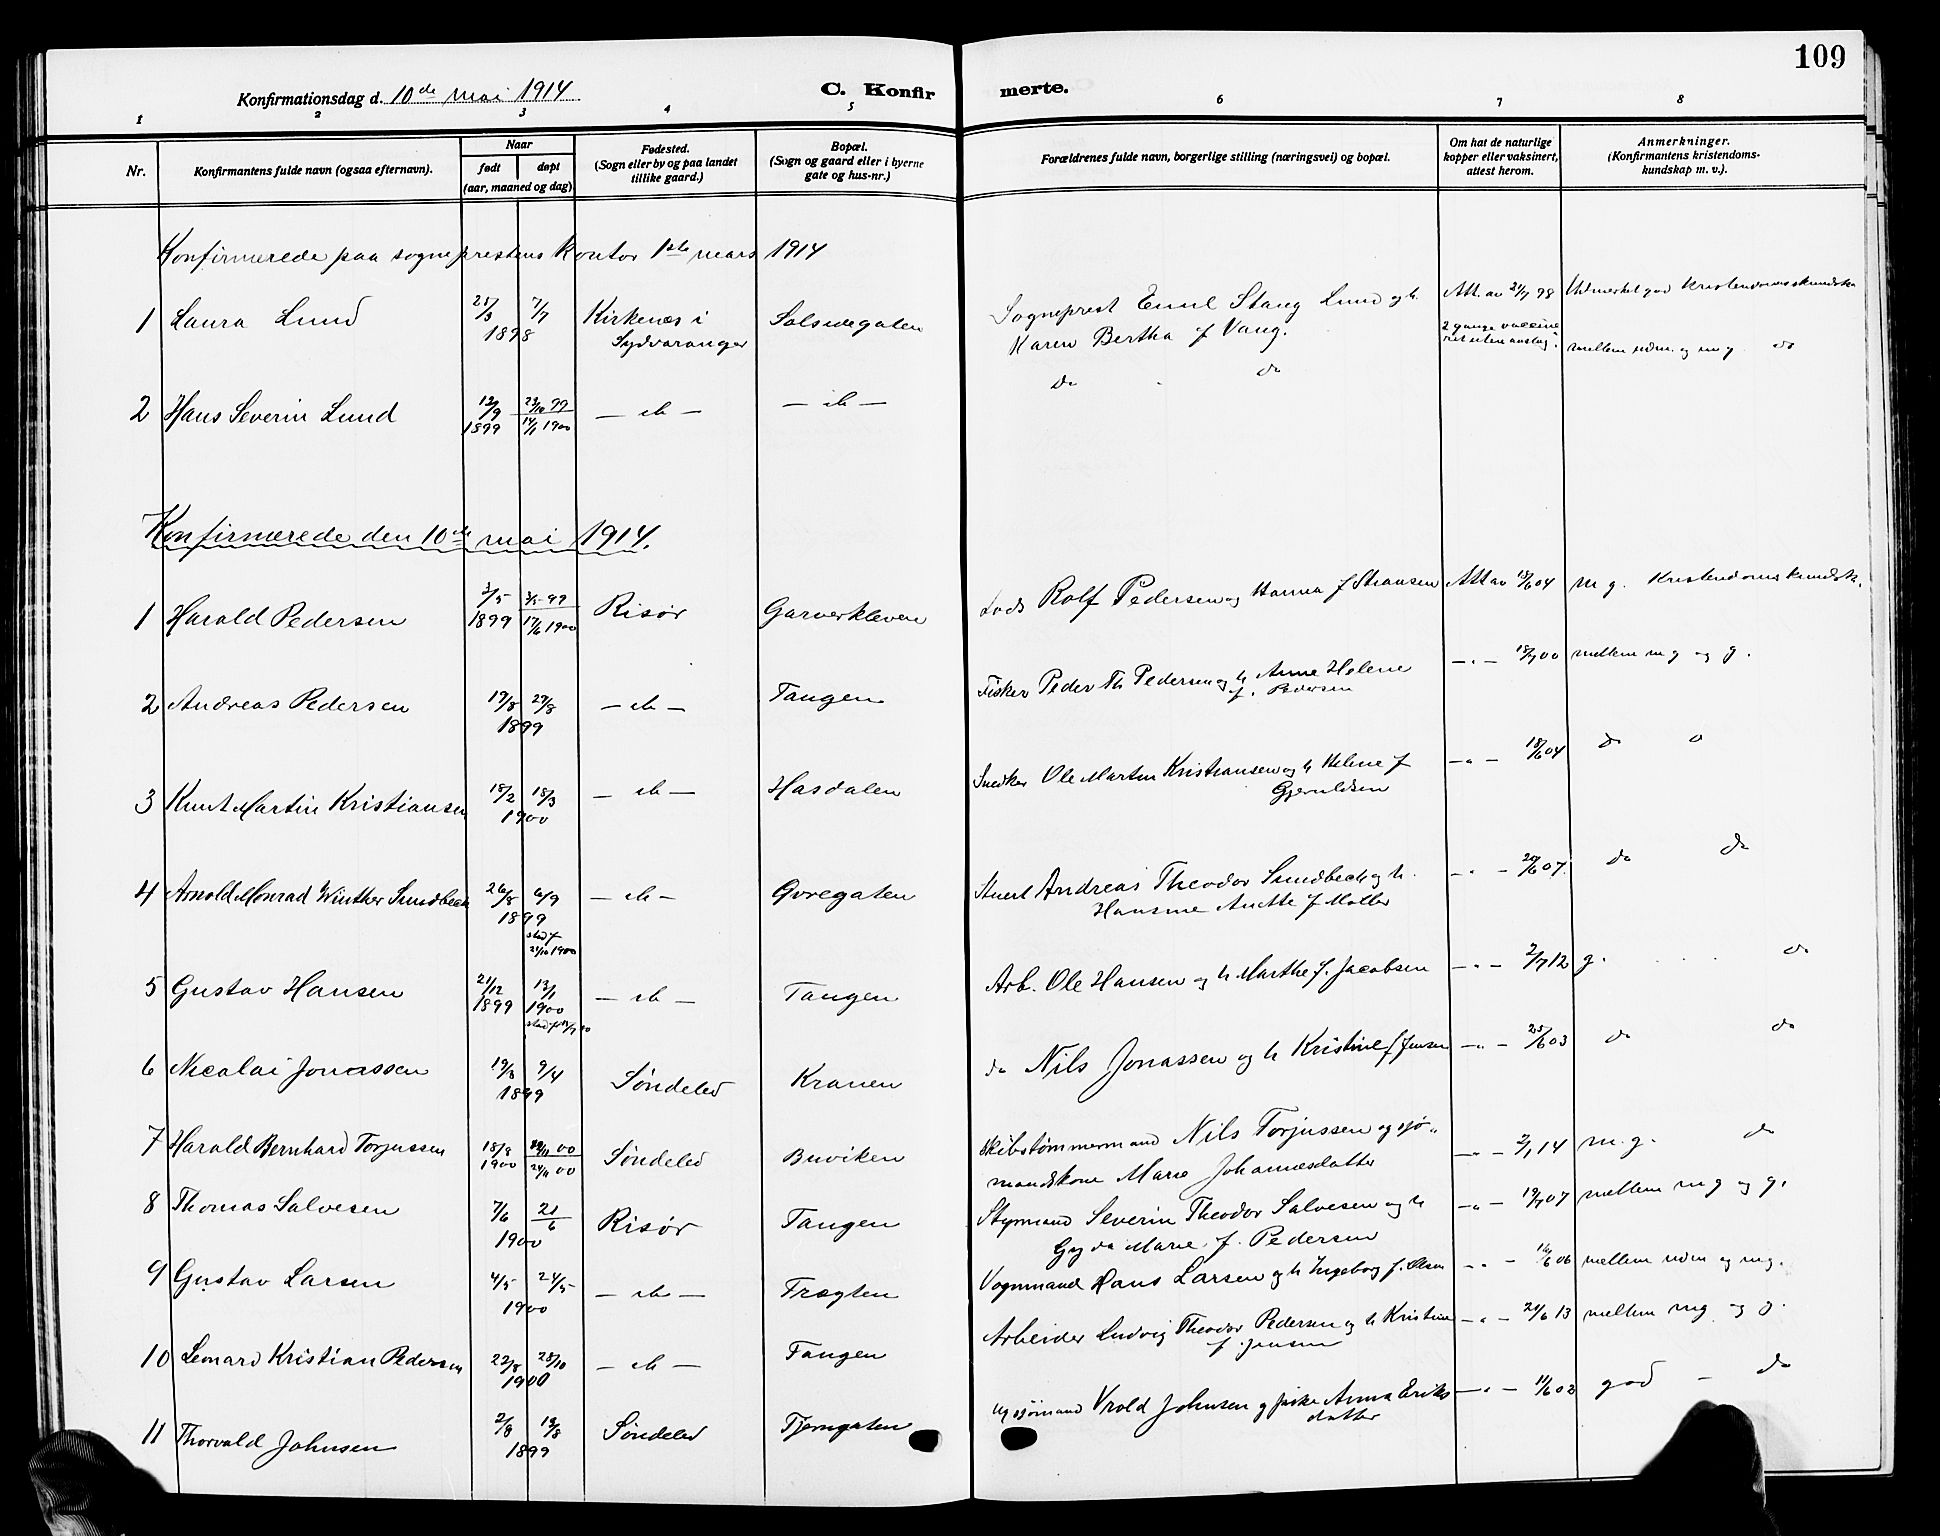 109
Konfirmationsdag d. 10de mai 1914
C. Konfir merte.
1 2 3 4 5 6 7 8
Nr.
Konfirmantens fulde navn (ogsaa efternavn).
Naar
født døpt
(aar, maaned og dag)
Fødested.
(Sogn eller by og paa landet
tillike gaard.)
Bopæl.
(Sogn og gaard eller i byerne
gate og hus-nr.)
Forældrenes fulde navn, borgerlige stilling (næringsvei) og bopæl.
Om hat de naturlige
kopper eller vaksinert,
attest herom.
Anmerkninger.
(Konfirmantens kristendoms-
kundskap m. v.).
Konfirmerede paa sogneprestens kontor 1ste mars 1914
1 Laura Lund 25/3 7/7 1898 Kirkenes i Sydvaranger Solsidegaten Sogneprest Emil Stang Lund og h. Att. av 21/7 98 Udmerket god Kristendomskundska
Karen Bertha f Vang. 2 gange vaccine
ret uten anslag.
2 Hans Severin Lund 12/9 1899 23/10 99 14/1 1900 — do — — do — do do mellem udm. og m g. do
Konfirmerede den 10de mai 1914.
1 Harald Pedersen 3/5 1899 3/5 99 17/6 1900 Risør Garverkleven Lods Rolf Pedersen og Hanna f Stransen Att av 18/6 04 m g. Kristendomskundsk.
2 Andreas Pedersen 19/8 29/8 1899 — do — Tangen Fisker Peder Th Pedersen og h Anne Helene
f. Pedersen — " — 18/7 00 mellem m g og g.
3 Knut Martin Kristiansen 18/2 18/3 1900 — do — Hasdalen Snedker Ole Martin Kristiansen og h Helene f
Gjeruldsen — " — 18/6 04 do o
4 Arnold Monrad Winther Sundbeck 26/8 6/9 1899 stad f 21/10 1900 — do — Gvregaten Stuert Andreas Theodor Sundbeck og h.
Hansine Anette f Møller — " — 20/6 07. do do
5 Gustav Hansen 21/12 1899 13/1 1900 — do — Tangen Arb. Ole Hansen og h Marthe f. Jacobsen — " — 2/7 12 g. do
6 Nicolai Jonassen 19/3 9/4 1899 Søndeled Kranen do Nils Jonassen og h Kristine f Jensen — " — 25/6 03 do do
7 Harald Bernhard Torjussen 18/8 1900 00 24/11 00 Søndeled Buviken Skibstømmermand Nils Torjussen og sjø-
mandskone Marie Johannesdatter — " — 2/1 14 m. g. do
8 Thomas Salvesen 7/6 21/6 1900 Risør Tangen Styrmand Severin Theodor Salvesen og h
Gyda Marie f. Pedersen — " — 19/7 07 mellem m g og g.
9 Gustav Larsen 4/5 24/5 1900 — do — Trægten Vognmand Hans Larsen og h Ingeborg f. Olsen — " — 16/6 06 mellem udm og mg.
10 Lenard Kristian Pedersen 22/8 28/10 1900 — do — Tangen Arbeider Ludvig Theodor Pedersen og h Kristine
f. Jensen — " — 21/6 13 mellem mg og g.
11 Thorvald Johnsen 2/8 19/8 1899 Søndeled Tjerngaten Ug sjømand Vrold Johnsen g pike Anna Eriks
datter — " — 11/6 02 god — do